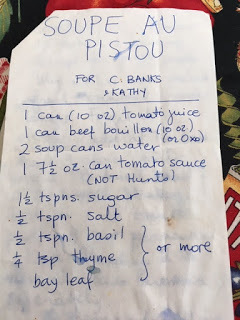 SOUPE AU
PISTOU
FOR C. BANKS
& KATHY
1 can (10 oz) tomato juice
1 can beef bouillon (10 oz.)
(or Oxo)
2 soup cans water
1 7½ oz. can tomato sauce
(NOT Hunts)
1½ tspns. sugar
½ tspn. salt
½ tspn. basil
¼ tsp thyme
or more
bay leaf